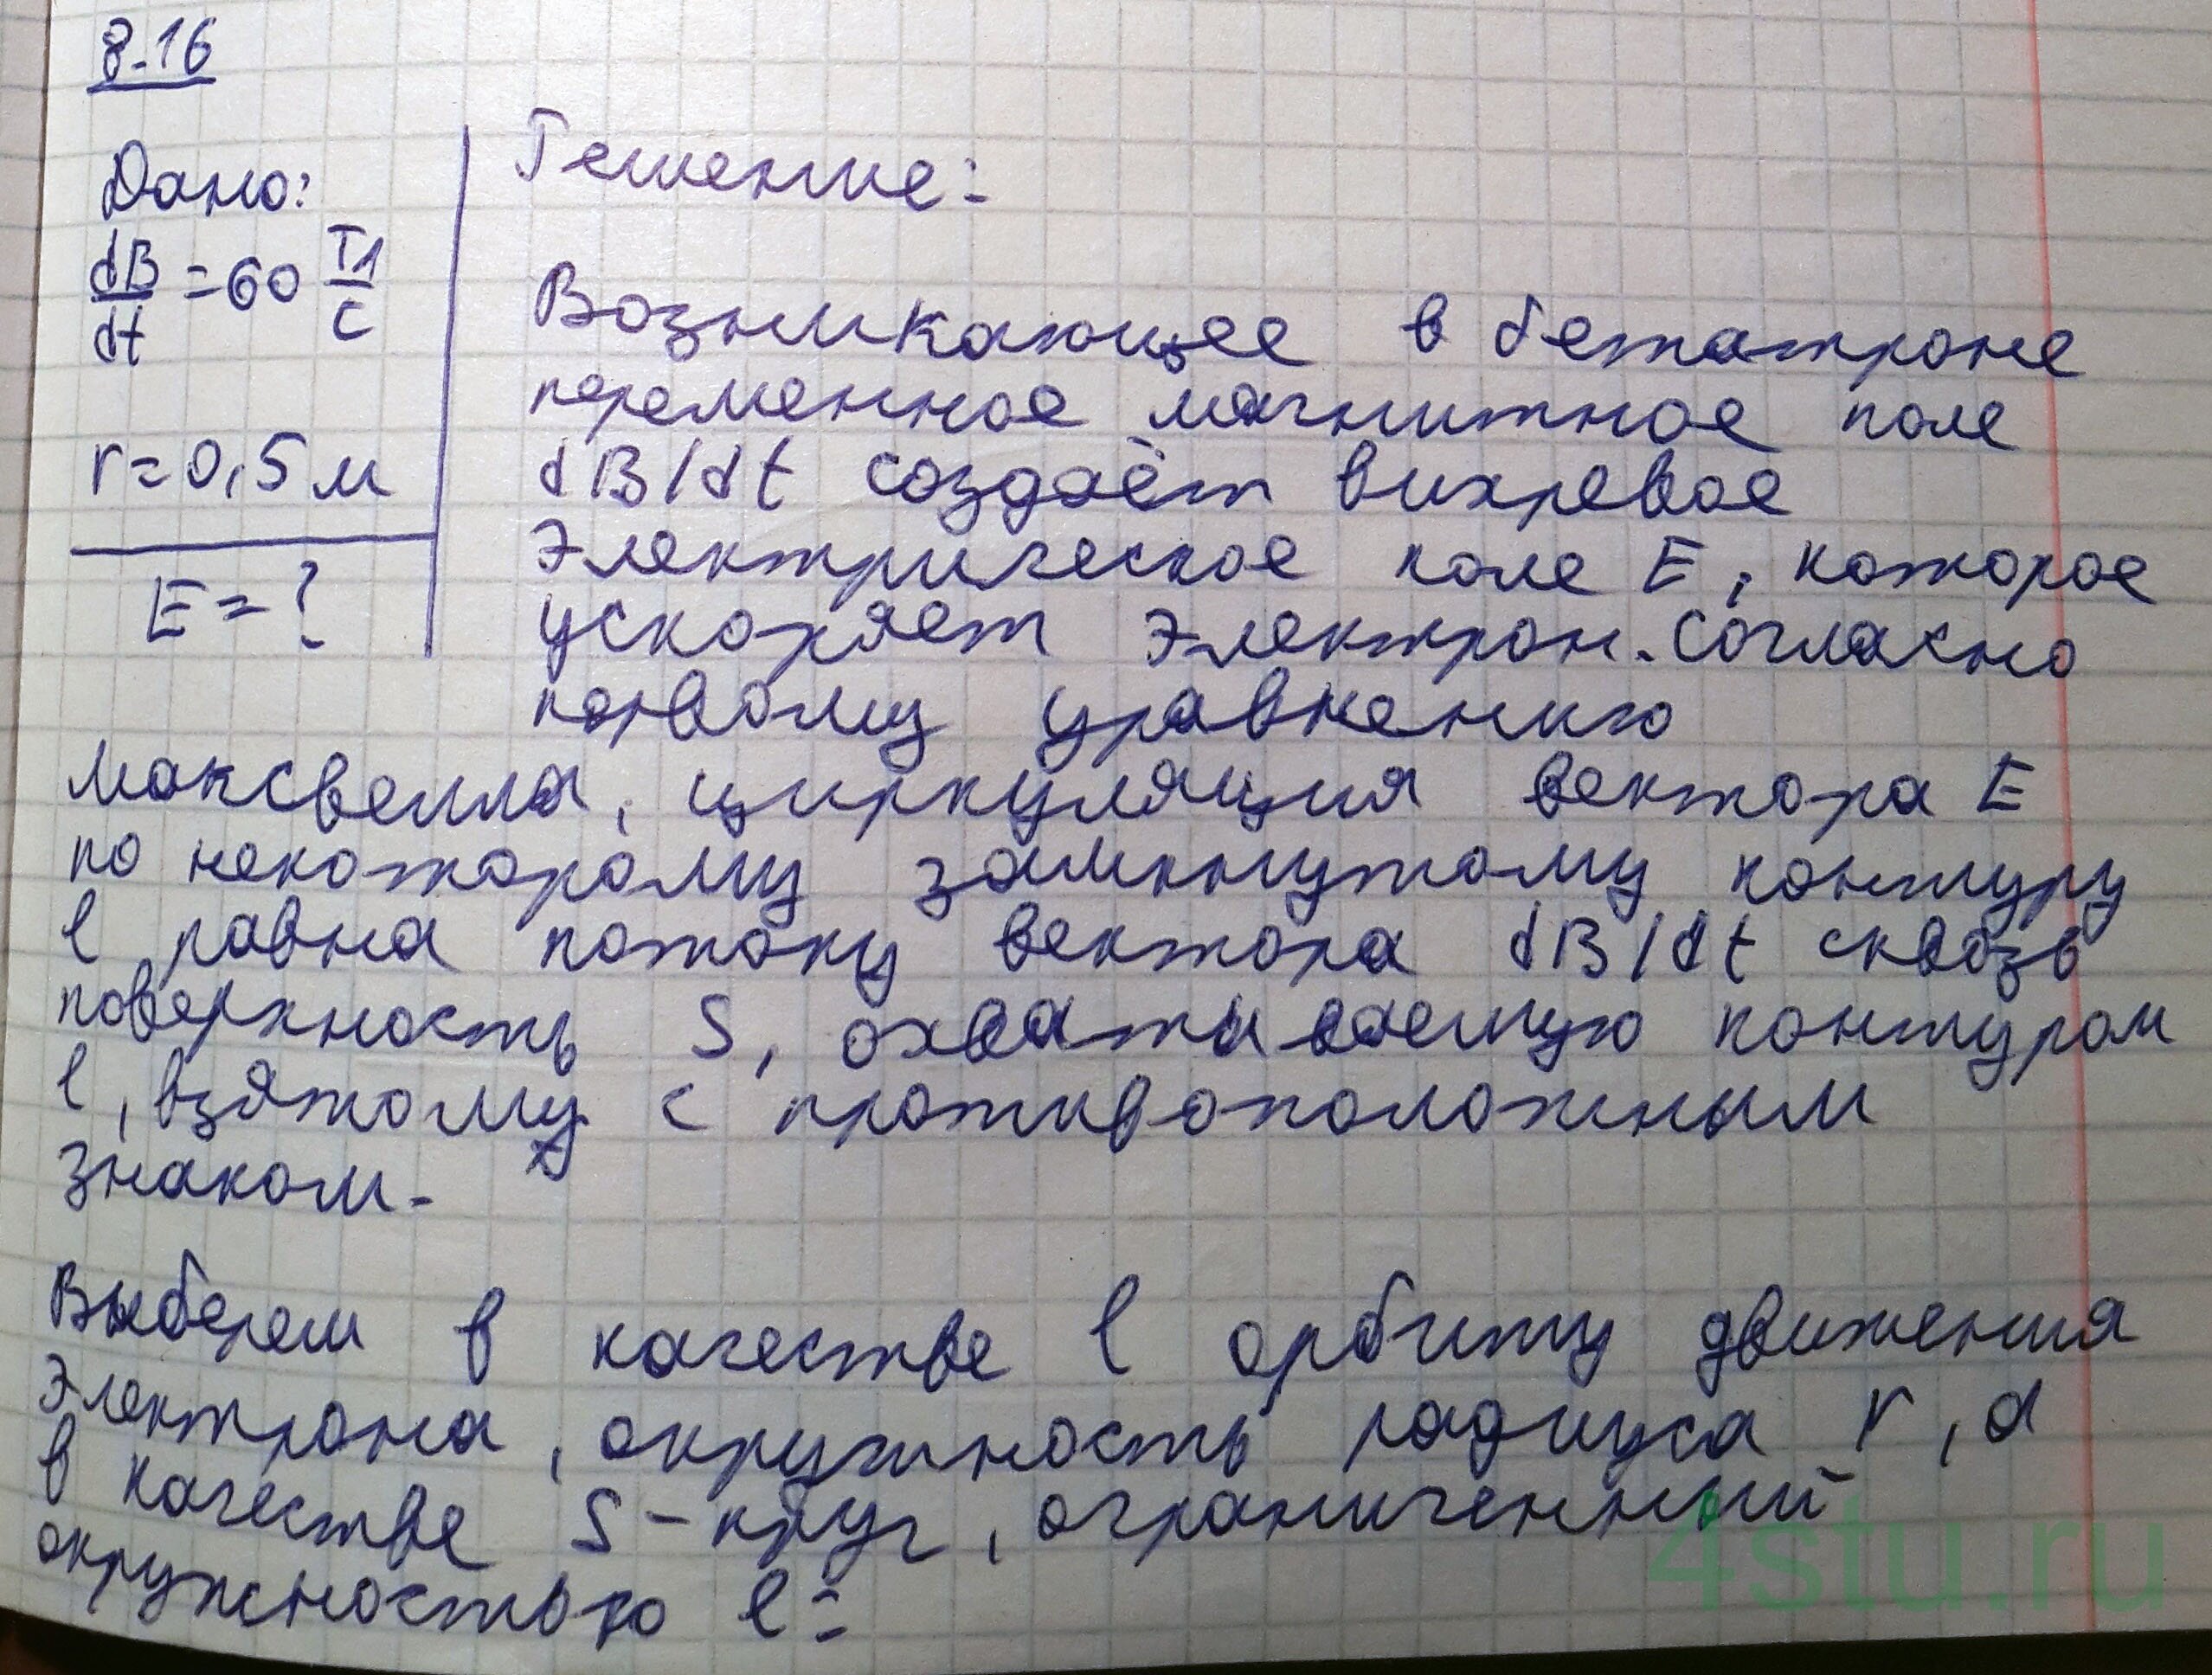 8.16
Дано:
dB/dt = 60 Тл/с
r = 0,5 м
E = ?
Решение:
Возникающее в бетатроне
переменное магнитное поле
dB/dt создаёт вихревое
электрическое поле E, которое
ускоряет электрон. Согласно
первому уравнению
Максвелла, циркуляция вектора E
по некоторому замкнутому контуру
l равна потоку вектора dB/dt сквозь
поверхность S, охватываемую контуром
l, взятому с противоположным
знаком.
Выберем в качестве l орбиту движения
электрона, окружность радиуса r, а
в качестве S - круг, ограниченный
окружностью l:
4stu.ru